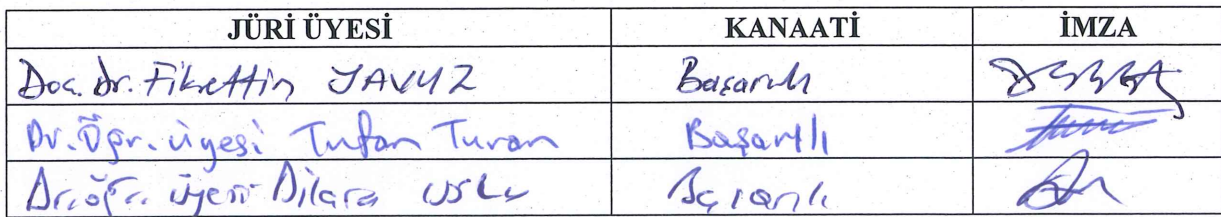 JÜRİ ÜYESİ KANAATİ İMZA
Doç. Dr. Fikrettin YAVUZ Başarılı
Dr. Öğr. üyesi Tufan Turan Başarılı
Dr. öğr. üyesi Dilara USLU Başarılı